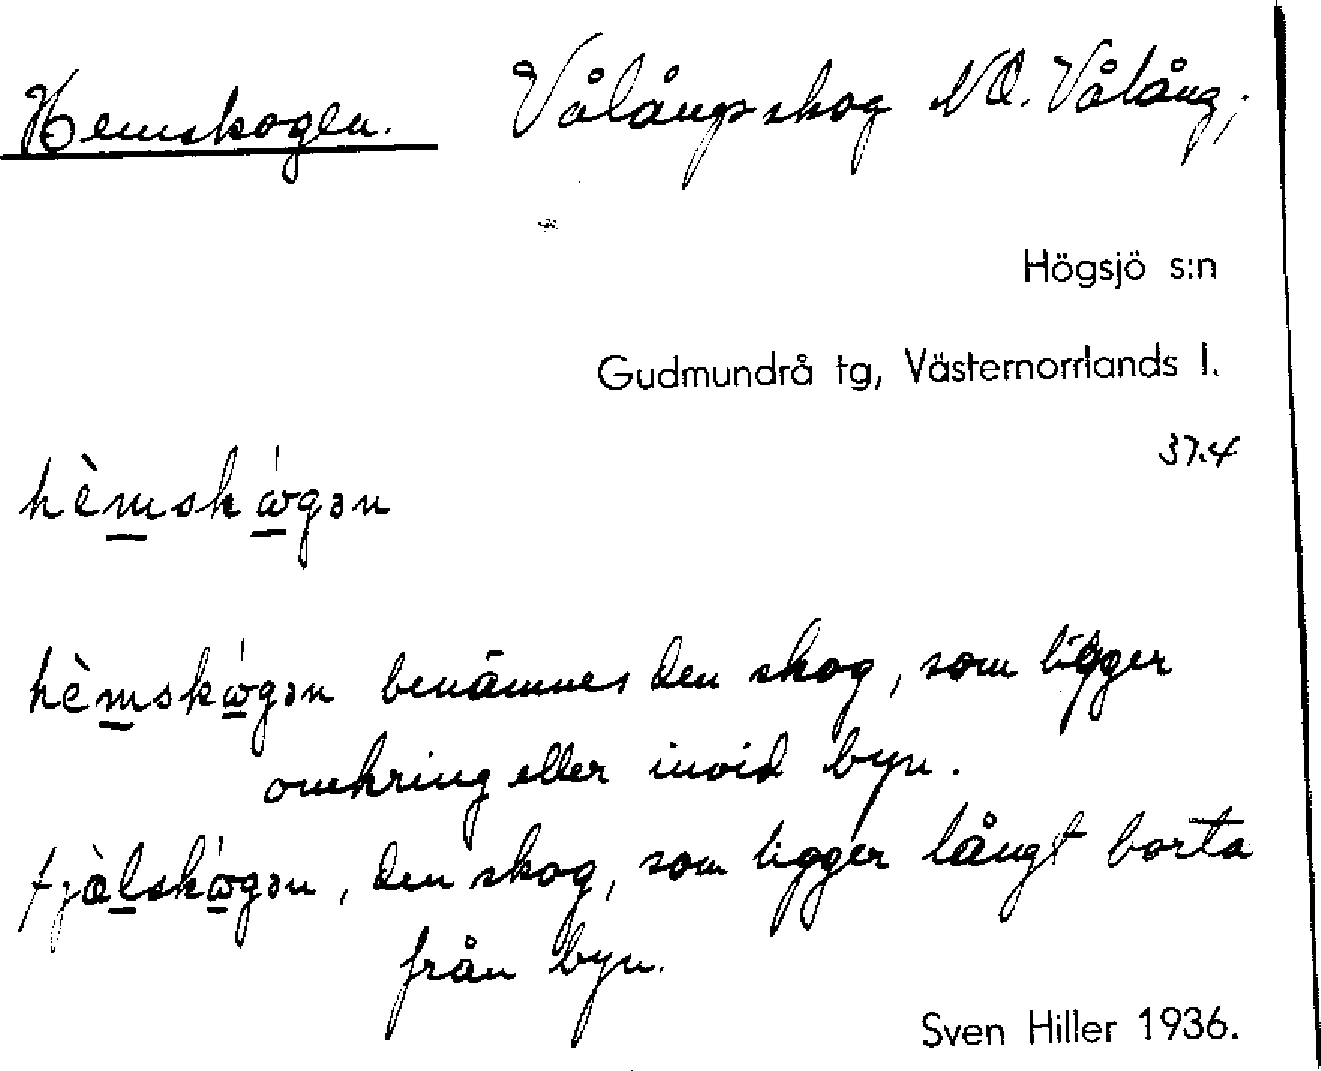 Hemskogen. Vålångsskog NO. Vålång;
Högsjö s:n
Gudmundrå tg, Västernorrlands l.
37.4
hèmskώgən
hèmskώgən benämnes den skog, som ligger
omkring eller invid byn.
fjàlskώgən, den skog, som ligger långt borta
från byn.
Sven Hiller 1936.